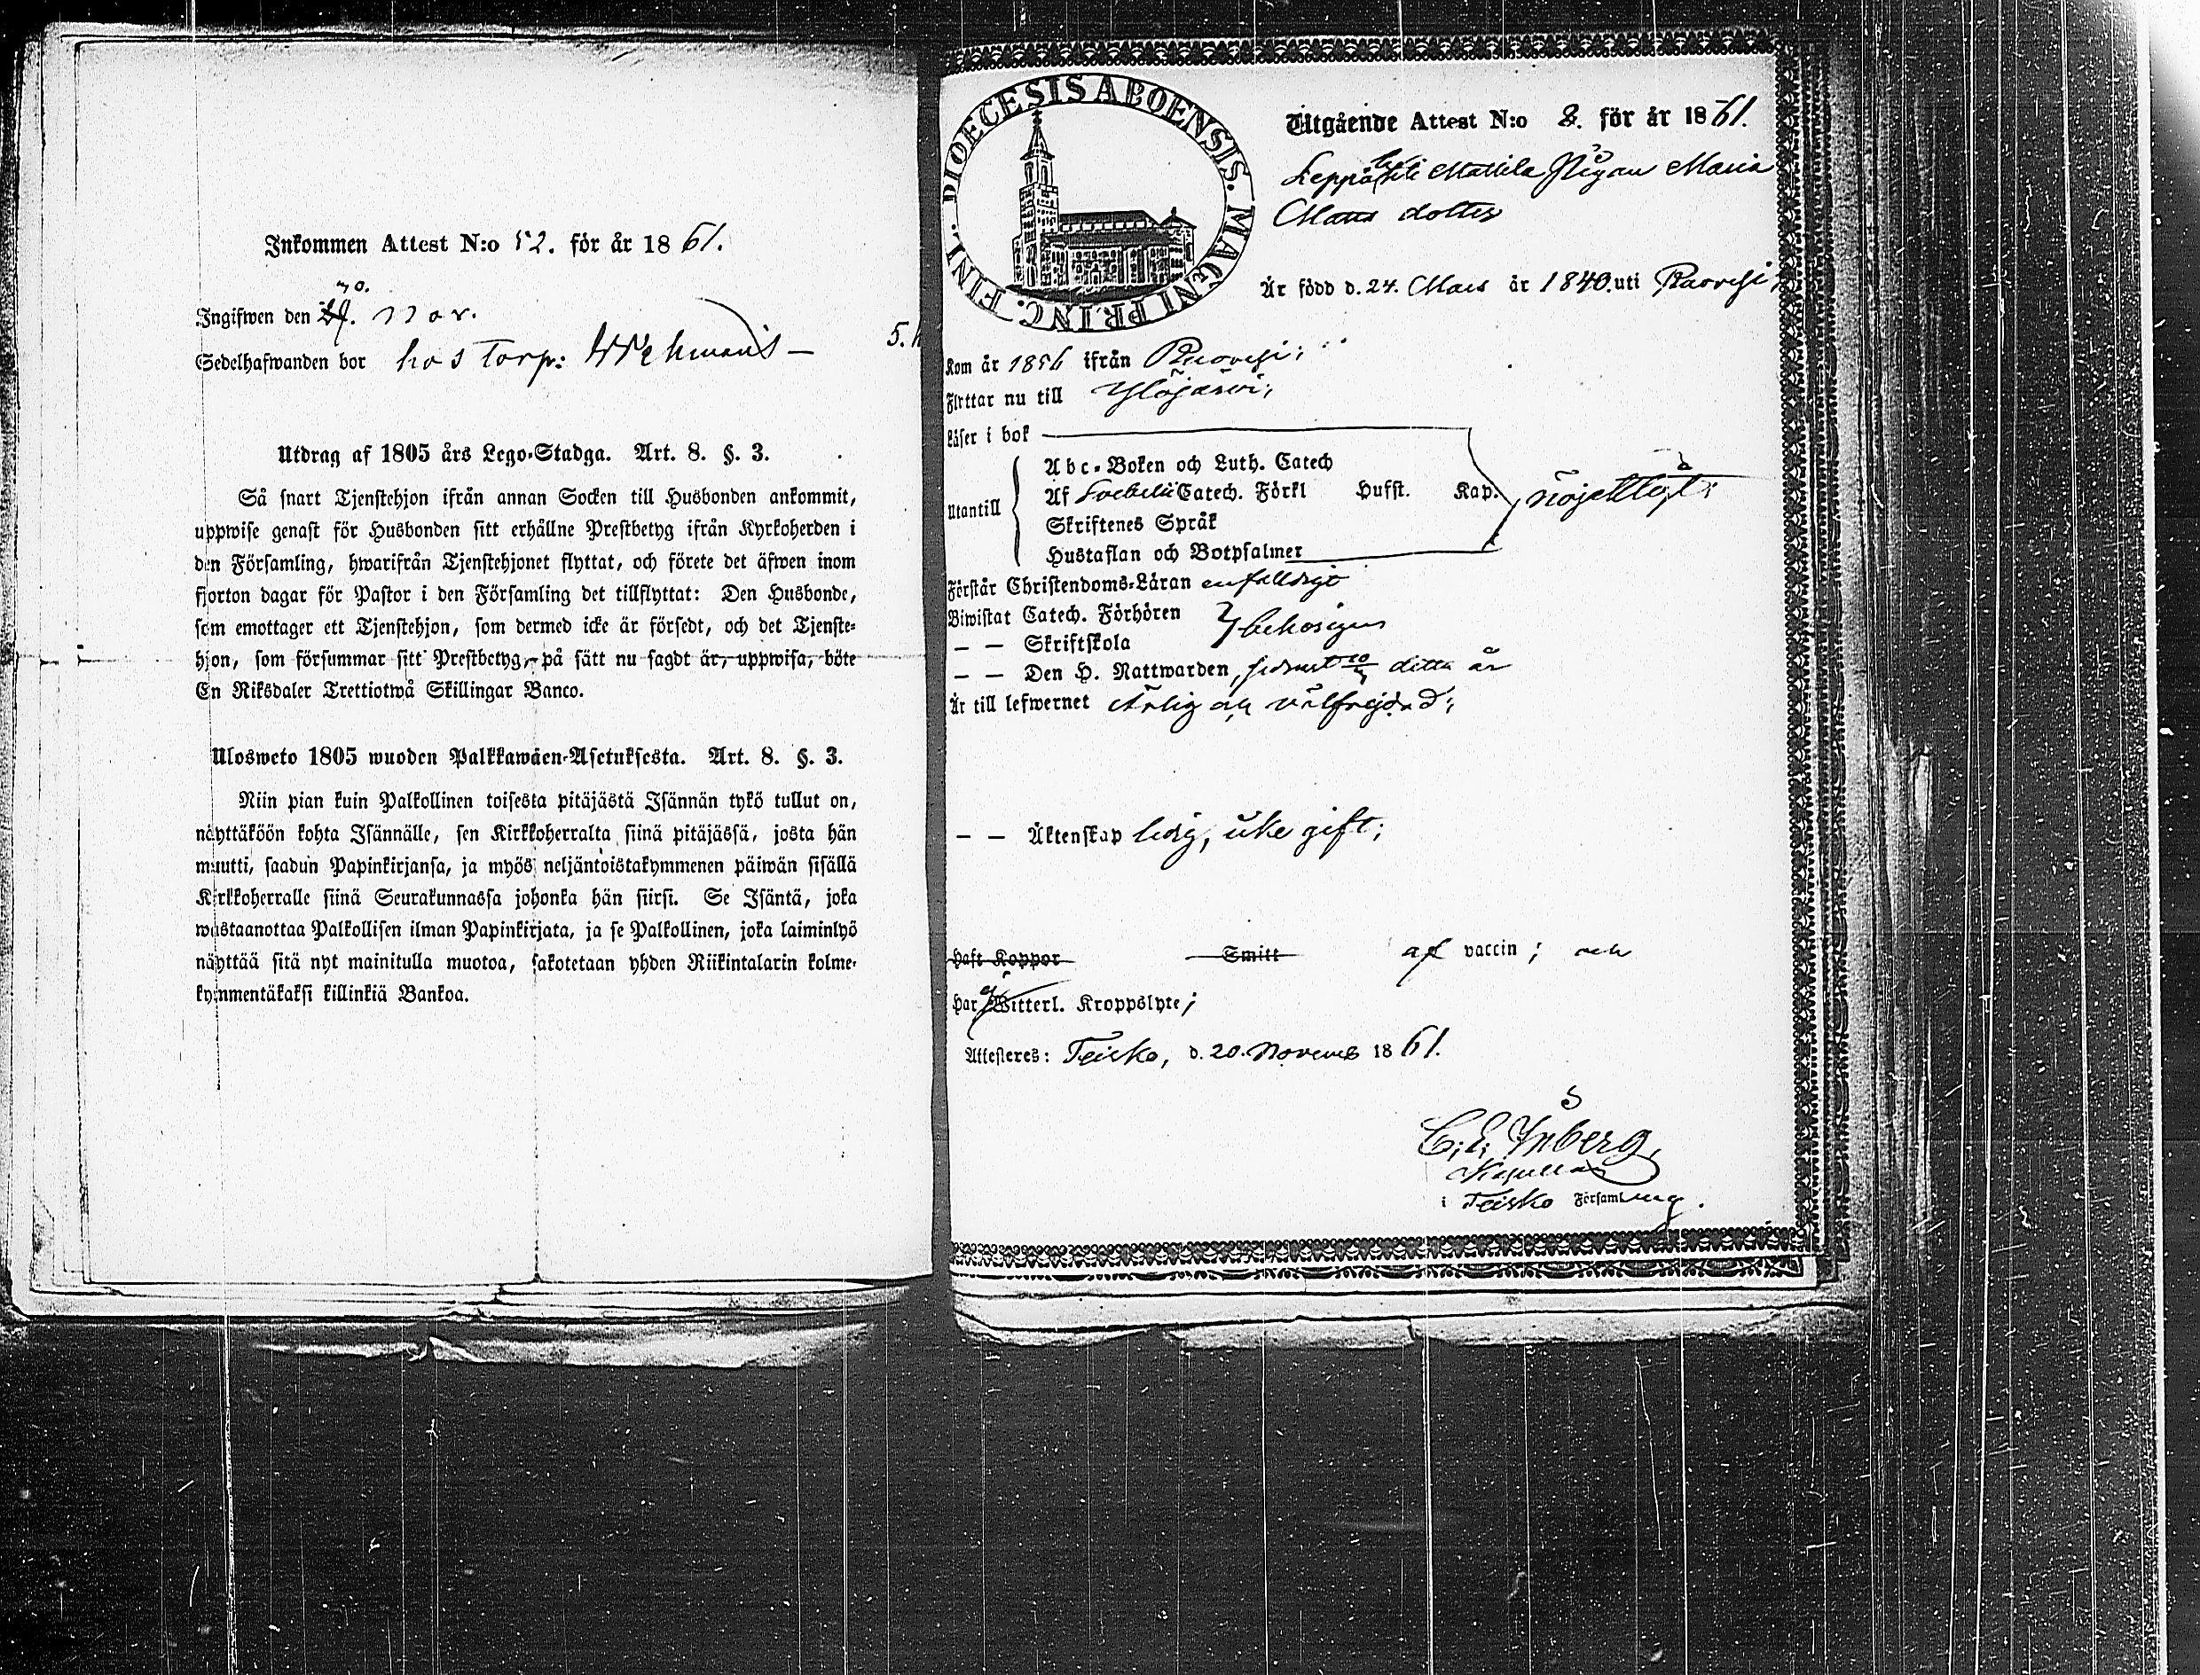 Inkommen Attest N:o 52. för år 1861.
30.
Ingifwen den 29. Nov.
Sedelhafwanden bor hos Torp:
Utdrag af 1805 års Lego-Stadga. Art. 8. §. 3.
Så snart Tjenstehjon ifrån annan Socken till Husbonden ankommit,
uppwise genast för Husbonden sitt erhållne Prestbetyg ifrån Kyrkoherden i
den Församling, hwarifrån Tjenstehjonet flyttat, och förete det äfwen inom
fjorton dagar för Pastor i den Församling det tillflyttat: Den Husbonde,
som emottager ett Tjenstehjon, som dermed icke är försedt, och det Tjenste-
hjon, som försummar sitt Prestbetyg, på sätt nu sagdt är, uppwisa, böte
En Riksdaler Trettiotwå Skillingar Banco.
Ulosweto 1805 wuoden Palkkawäen-Asetuksesta. Art. 8. §. 3.
Niin pian kuin Palkollinen toisesta pitäjästä Isännän tykö tullut on,
näyttäköön kohta Isännälle, sen Kirkkoherralta siinä pitäjässä, josta hän
muutti, saadun Papinkirjansa, ja myös neljäntoistakymmenen päiwän sisällä
Kirkkoherralle siinä Seurakunnassa johonka hän siirsi. Se Isäntä, joka
wastaanottaa Palkollisen ilman Papinkirjata, ja se Palkollinen, joka laiminlyö
näyttää sitä nyt mainitulla muotoa, sakotetaan yhden Riikintalarin kolme-
kymmentäkaksi killinkiä Bankoa.
DIOECESIS ABOENSIS. MAGNI PRINC. FINL.
Utgående Attest N:o 8. för år 1861.
Mattila Pigan Maria
Matts dotter
Är född d. 24. Mars år 1840. uti Ruovesi;
Kom år 1856 ifrån Ruovesi;
Flyttar nu till Ylöjärvi;
Läser i bok
Utantill
Abc-Boken och Luth. Catech
Af Svebelii Catech. Förkl Husst. Kap.
Skriftenes Språk
Hustaflan och Botpsalmer
nöjaktigt;
Förstår Christendoms-Läran enfalldigt
Biwistat Catech. Förhören
— — Skriftskola
behörigen
— — Den H. Nattwarden, sednast ditta år
Är till lefwernet ärlig och välfrejdad;
— — Äktenskap ledig, icke gift;
Haft Koppor Smitt af vaccin; och
Har ej Witterl. Kroppslyte;
Attesteres: Teisko, d. 20. Novemb 1861.
C. E. Inberg,
Kapellan
i Teisko Församling.